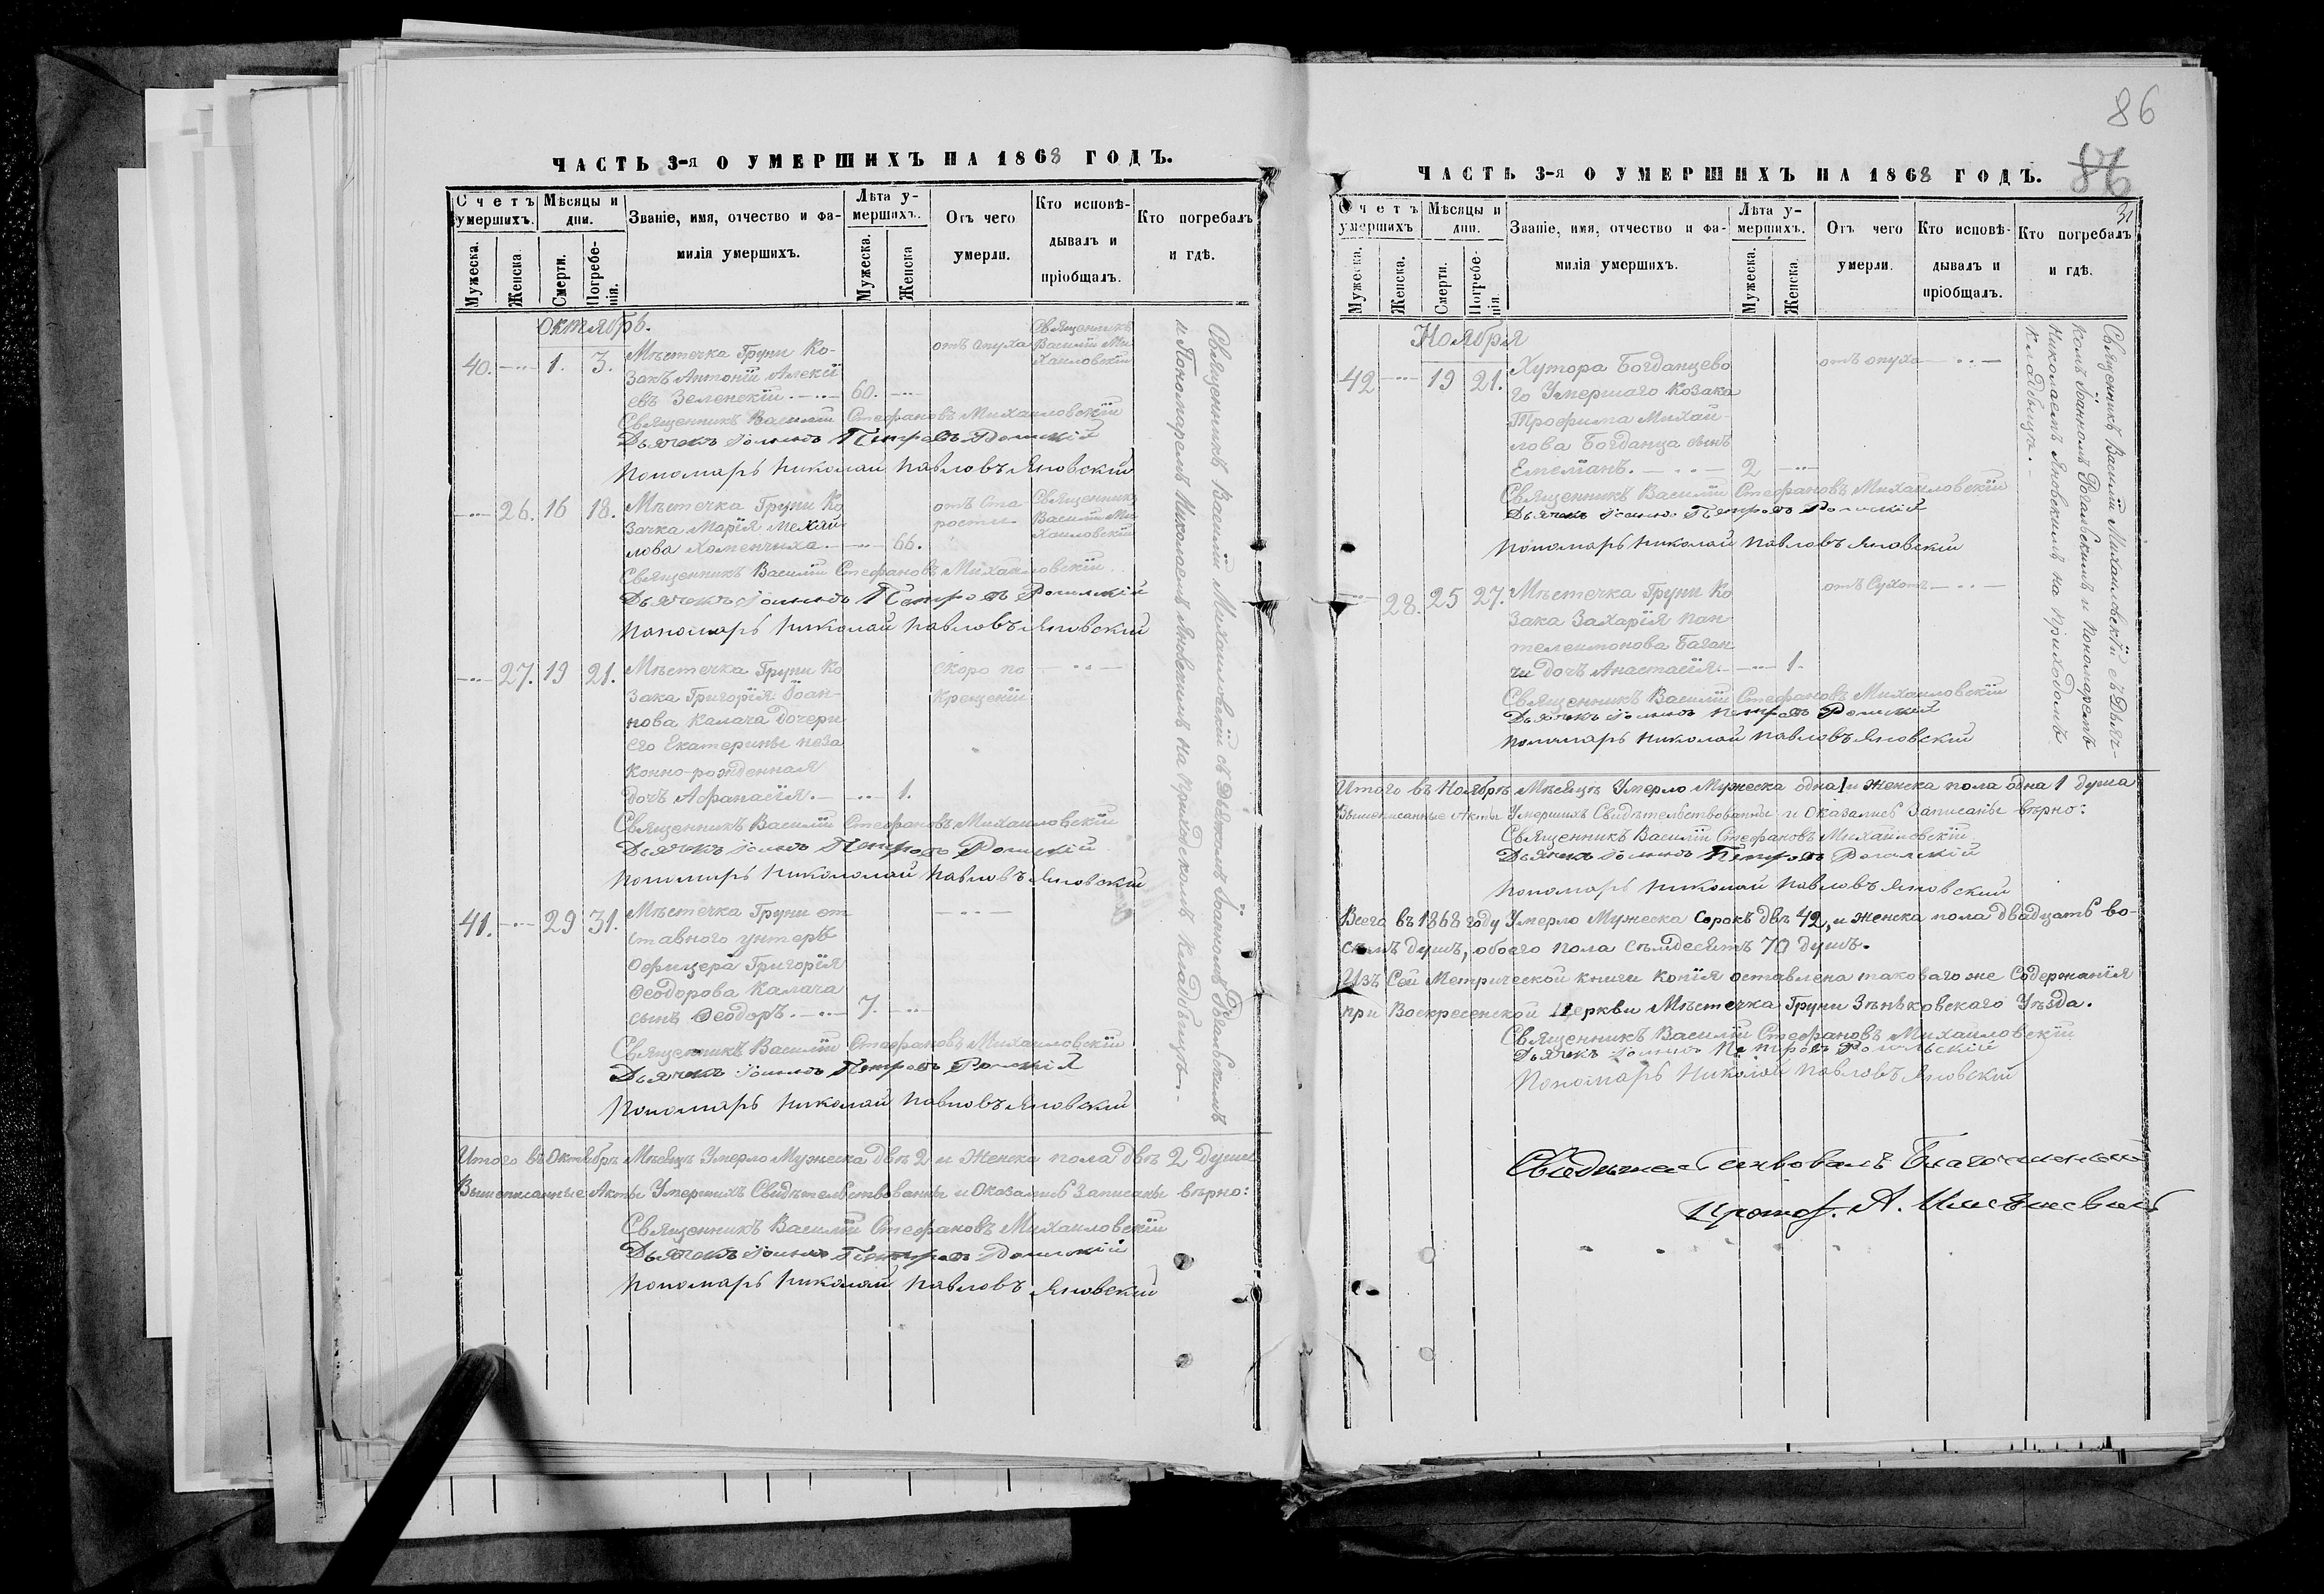 ЧАСТЬ 3-я О УМЕРШИХЪ НА 1868 ГОДЪ.
Счетъ умершихъ.
Мужеска.
Женска.
Мѣсяцы и дни.
Смерти.
Погребенія.
Званіе, имя, отчество и фамилія умершихъ.
Лѣта умершихъ.
Мужеска.
Женска
Отъ чего умерли.
Кто исповѣдывалъ и пріобщалъ.
Кто погребалъ и гдѣ.
Октябрь.
40. 1. 3. Мѣстечка Груни Ко-
закъ Антоній Алексі
евъ Зеленскій. 60.
отъ опуха
Священникъ
Василій Ми
хаиловскій
Священникъ Василій Стефановъ Михаиловскій
Дьячекъ Іоаннъ Петровъ
Пономарь Николай Павловъ Яновскій
26. 16 18. Мѣстечка Груни Ко
зачка Марія Михай
лова Хоменчиха. 66.
отъ Ста
рости
Священникъ
Василій Ми
хаиловскій
Священникъ Василій Стефановъ Михаиловскій
Дьячекъ Іоаннъ Петровъ
Пономарь Николай Павловъ Яновскій
27. 19 21. Мѣстечка Груни Ко
зака Григорія Іоан-
нова Калача дочери
его Екатерины неза
конно-рожденная
дочь Афанасія. 1.
скоро по
крещеніи
Священникъ Василій Стефановъ Михаиловскій
Дьячекъ Іоаннъ Петровъ
Пономарь Никололай Павловъ Яновскій
41. 29 31. Мѣстечка Груни от
ставного унтеръ
Офицера Григорія
Ѳеодорова Калача
сынъ Ѳеодоръ. 7.
Священникъ Василій Стефановъ Михаиловскій
Дьячекъ Іоаннъ Петровъ
Пономарь Николай Павловъ Яновскій
Священникъ Василій Михаиловскій съ Дьячкомъ Іоанномъ
и Пономаремъ Николаемъ Яновскимъ на приходскомъ кладбищѣ.
Итого въ Октябрѣ Мѣсяцѣ Умерло Мужеска двѣ 2 и Женска пола двѣ 2 души
Вышеписанные Акты Умершихъ Свидѣтельствованны и Оказались Записаны вѣрно:
Священникъ Василій Стефановъ Михаиловскій
Дьячекъ Іоаннъ Петровъ
Пономарь Николай Павловъ Яновскій
86
ЧАСТЬ 3-я О УМЕРШИХЪ НА 1868 ГОДЪ.
31
Счетъ умершихъ
Мужеска.
Женска.
Мѣсяцы и дни.
Смерти.
Погребенія.
Званіе, имя, отчество и фамилія умершихъ.
Лѣта умершихъ.
Мужеска.
Женска.
Отъ чего умерли.
Кто исповѣдывалъ и пріобщалъ.
Кто погребалъ и гдѣ.
Ноября
42 19 21. Хутора Богданцево
го Умершаго Козака
Трофима Михай-
лова Богданца сынъ
Емеліанъ. 2
отъ опуха
Священникъ Василій Стефановъ Михаиловскій
Дьячекъ Іоаннъ Петровъ
Пономарь Николай Павловъ Яновскій
28. 25 27. Мѣстечка Груни Ко
зака Захарія Пан
телеимонова Баган
чи дочь Анастасія. 1.
отъ Сухотъ
Священникъ Василій Стефановъ Михаиловскій
Дьячекъ Іоаннъ Петровъ
Пономарь Николай Павловъ Яновскій
Священникъ Василій Михаиловскій съ Дьяч-
комъ Іоанномъ и Пономаремъ
Николаемъ Яновскимъ на приходскомъ
кладбищѣ.
Итого въ Ноябрѣ Мѣсяцѣ Умерло Мужеска одна 1 и Женска пола одна 1 душа
Вышеписанные Акты Умершихъ Свидѣтельствованны и Оказались Записаны вѣрно:
Священникъ Василій Стефановъ Михаиловскій
Дьячекъ Іоаннъ Петровъ
Пономарь Николай Павловъ Яновскій
Всего въ 1868 году Умерло Мужеска Сорокъ двѣ 42, и женска пола двадцать во-
семь душъ, обоего пола семдесятъ 70 душъ.
Изъ Сей Метрической книги копія оставлена таковаго же Содержанія
при Воскресенской Церкви Мѣстечка Груни Зѣньковскаго Уѣзда.
Священникъ Василій Стефановъ Михаиловскій
Дьячекъ Іоаннъ Петровъ
Пономарь Николай Павловъ Яновскій
Свидѣтельствовалъ Благочинный
Протоі. А.